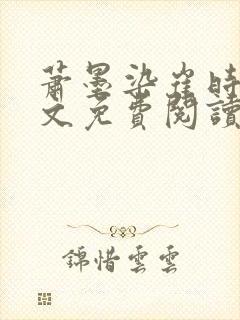 蕭墨染崖時
文免費閱讀
錦惜雲雲